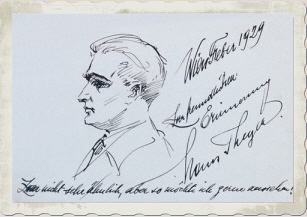 Wien Feber 1929
Zur freundlichen
Erinnerung
Hans Theyer
Zwar nicht sehr ähnlich, aber so möchte ich gerne aussehen!